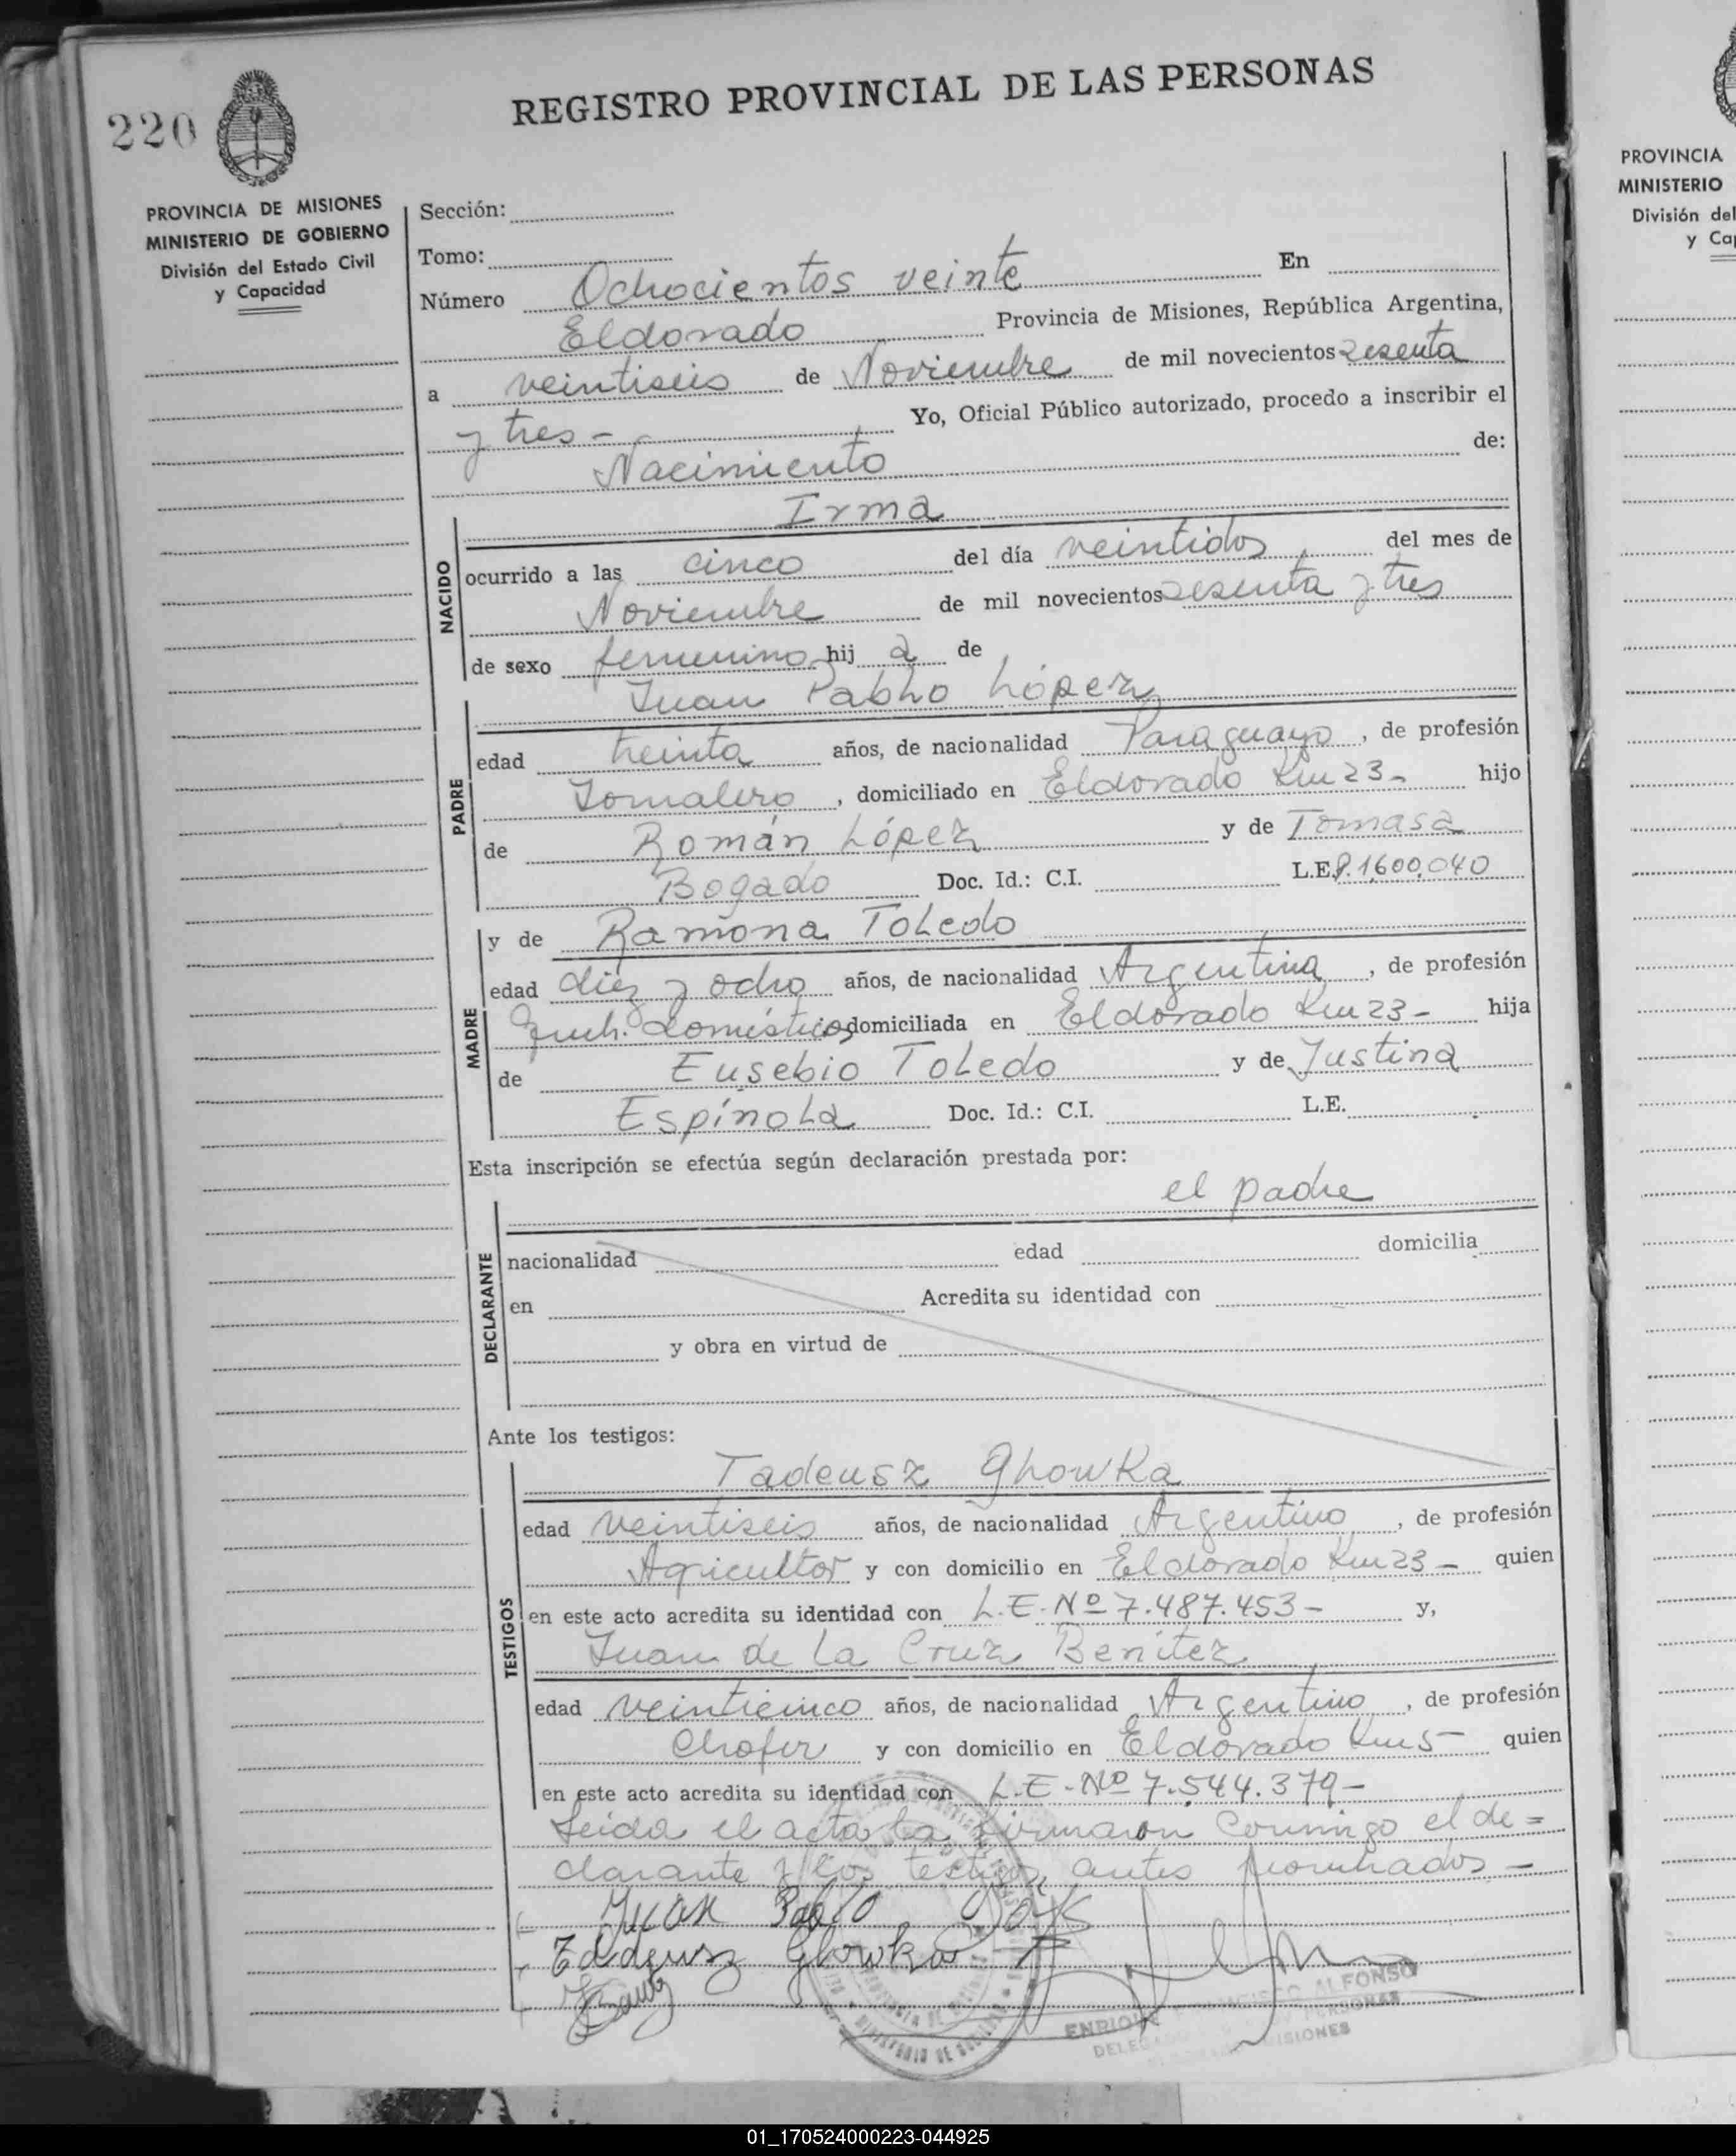 220
REGISTRO PROVINCIAL DE LAS PERSONAS
PROVINCIA DE MISIONES
MINISTERIO DE GOBIERNO
División del Estado Civil
y Capacidad
Sección:
Tomo:
Número Ochocientos veinte En
Eldorado Provincia de Misiones, República Argentina,
a veintiseis de Noviembre de mil novecientos sesenta
y tres - Yo, Oficial Público autorizado, procedo a inscribir el
Nacimiento de:
Irma
NACIDO
ocurrido a las cinco del día veintidos, del mes de
Noviembre de mil novecientos sesenta y tres
de sexo femenino hij a de
Juan Pablo López
PADRE
edad treinta años, de nacionalidad Paraguayo, de profesión
Jornalero, domiciliado en Eldorado Km 23- hijo
de Román López y de Tomasa
Bogado Doc. Id.: C.I. L.E. 1,600,040
y de Ramona Toledo
MADRE
edad diez y ocho años, de nacionalidad Argentina, de profesión
domésticos domiciliada en Eldorado Km 23- hija
de Eusebio Toledo y de Justina
Espínola Doc. Id.: C.I. L.E.
Esta inscripción se efectúa según declaración prestada por:
el padre
DECLARANTE
nacionalidad edad domicilia
en Acredita su identidad con
y obra en virtud de
Ante los testigos:
Tadeusz Glowka
TESTIGOS
edad veintiseis años, de nacionalidad Argentino, de profesión
Agricultor y con domicilio en Eldorado Km 23- quien
en este acto acredita su identidad con L.E. Nº 7.487.453- y,
Juan de la Cruz Benítez
edad veinticinco años, de nacionalidad Argentino, de profesión
Chofer y con domicilio en Eldorado Km 5- quien
en este acto acredita su identidad con L.E - Nº 7.544.379-
Leída el acta la firmaron conmigo el de=
clarante y los testigos antes nombrados -
Juan Pablo
Tadeusz Glowka
ENRIQUE FRANCISCO ALFONSO
PERSONAS
MISIONES
PROVINCIA
MINISTERIO
División del
y Cap
01_170524000223-044925